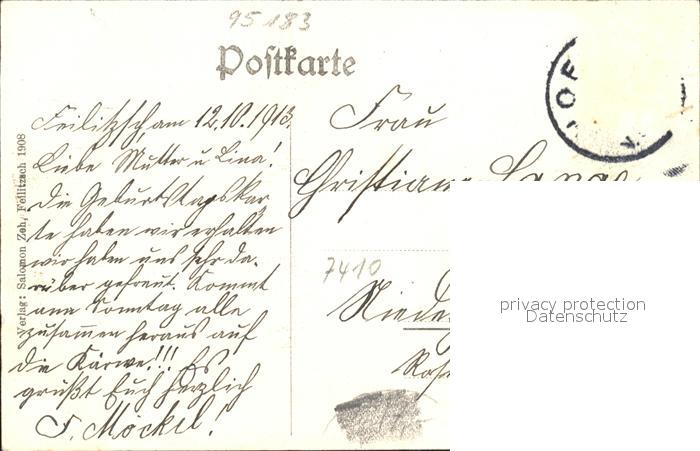 95183
Postkarte
HOF
Verlag: Salomon Zeh, Feilitzsch 1908
Feilitzsch am 12.10.1913.
Liebe Mutter u Lina!
Die Geburtstagskar
te haben wir erhalten
wir haben uns sehr da-
rüber gefreut. Kommt
am Sonntag alle
zusammen heraus auf
die Kärwe!!! Es
grüßt Euch herzlich
F. Möckel!
Frau
Christiane
7410
privacy protection
Datenschutz